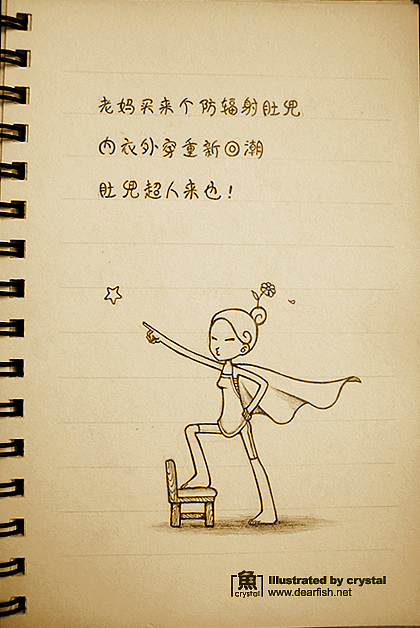 老妈买来个防辐射肚兜
内衣外穿重新回潮
肚兜超人来也！
魚
crystal
Illustrated by crystal
www.dearfish.net